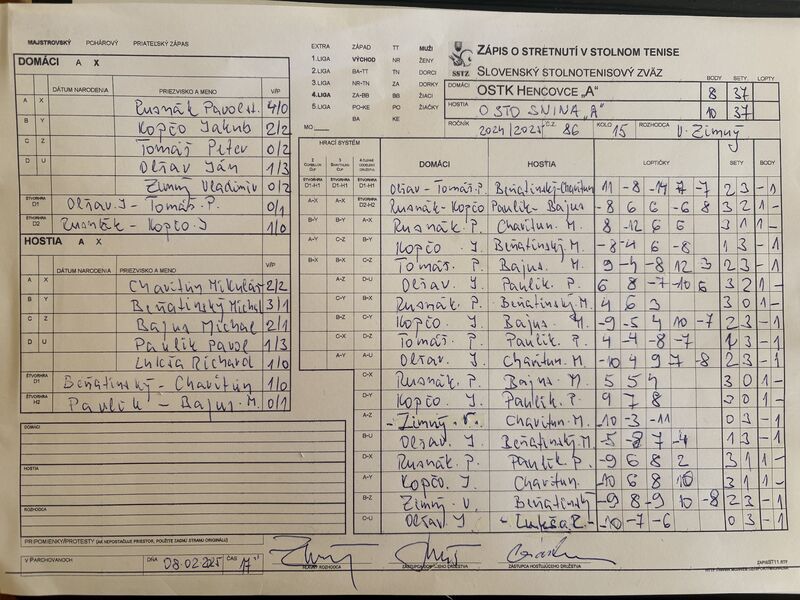 MAJSTROVSKÝ POHÁROVÝ PRIATEĽSKÝ ZÁPAS
DOMÁCI A X
DÁTUM NARODENIA PRIEZVISKO A MENO V/P
A X Rusnák Pavol st. 4/0
B Y Kopčo Jakub 2/2
C Z Tomáš Peter 0/2
D U Oľšav Ján 1/3
Zimný Vladimír 0/2
ŠTVORHRA D1 Oľšav J. - Tomáš P. 0/1
ŠTVORHRA D2 Rusnák - Kopčo J 1/0
HOSTIA A X
DÁTUM NARODENIA PRIEZVISKO A MENO V/P
A X Chavitun Mikuláš 2/2
B Y Beňatinský Michal 3/1
C Z Bajus Michal 2/1
D U Paulik Pavol 1/3
Lukša Richard 1/0
ŠTVORHRA D1 Beňatinský - Chavitun 1/0
ŠTVORHRA H2 Paulik - Bajus M. 0/1
DOMÁCI
HOSTIA
ROZHODCA
PRIPOMIENKY/PROTESTY (AK NEPOSTAČUJE PRIESTOR, POUŽITE ZADNÚ STRANU ORIGINÁLU)
V PARCHOVANOCH DŇA 08.02.2025 ČAS 17
EXTRA ZÁPAD TT MUŽI
1.LIGA VÝCHOD NR ŽENY
2.LIGA BA-TT TN DORCI
3.LIGA NR-TN ZA DORKY
4.LIGA ZA-BB BB ŽIACI
5.LIGA PO-KE PO ŽIAČKY
BA KE
MO
SSTZ
ZÁPIS O STRETNUTÍ V STOLNOM TENISE
SLOVENSKÝ STOLNOTENISOVÝ ZVÄZ
BODY SETY LOPTY
DOMÁCI OSTK HENCOVCE „A“ 8 37
HOSTIA OSTO SNINA „A“ 10 37
ROČNÍK 2024/2025 Č.Z. 86 KOLO 15 ROZHODCA V. Zimný
HRACÍ SYSTÉM
DOMÁCI HOSTIA LOPTIČKY SETY BODY
ŠTVORHRA D1-H1 ŠTVORHRA D1-H1 ŠTVORHRA D1-H1 Oľšav - Tomáš P. Beňatinský-Chavitun 11 -8 -14 7 -7 2 3 - 1
A-X A-X ŠTVORHRA D2-H2 Rusnák - Kopčo Paulik - Bajus -8 6 6 -6 8 3 2 1 -
B-Y B-Y A-X Rusnák P. Chavitun. M. 8 -12 6 6 3 1 1 -
A-Y C-Z B-Y Kopčo J Beňatinský M. -8 -4 6 -8 1 3 - 1
B-X B-X C-Z Tomáš P. Bajus. M. 9 -4 -8 12 3 2 3 - 1
A-Z D-U Oľšav. J. Paulik. P. 6 8 -7 -10 6 3 2 1 -
C-Y B-X Rusnák P. Beňatinský M. 4 6 3 3 0 1 -
B-Z C-Y Kopčo. J. Bajus. M. -9 -5 4 10 -7 2 3 - 1
C-X D-Z Tomáš P. Paulik P. 4 -4 -8 -7 1 3 - 1
A-Y A-U Oľšav. J. Chavitun M. -10 4 9 7 -8 2 3 - 1
C-X Rusnák P. Bajus. M. 5 5 4 3 0 1 -
D-Y Kopčo J. Paulik. P. 9 7 8 3 0 1 -
A-Z - Zimný V. Chavitun. M. -10 -3 -11 0 3 - 1
B-U Oľšav. J. Beňatinský M. -5 -8 7 -4 1 3 - 1
D-X Rusnák P. Paulik P. -9 6 8 2 3 1 1 -
A-Y Kopčo. J. Chavitun. -10 6 8 10 3 1 1 -
B-Z Zimný. V. Beňatinský -9 8 -9 10 -8 2 3 - 1
C-U Oľšav J. - Lukša R. -10 -7 -6 0 3 - 1
HLAVNÝ ROZHODCA ZÁSTUPCA DOMÁCEHO DRUŽSTVA ZÁSTUPCA HOSŤUJÚCEHO DRUŽSTVA
ZAPAST11.RTF